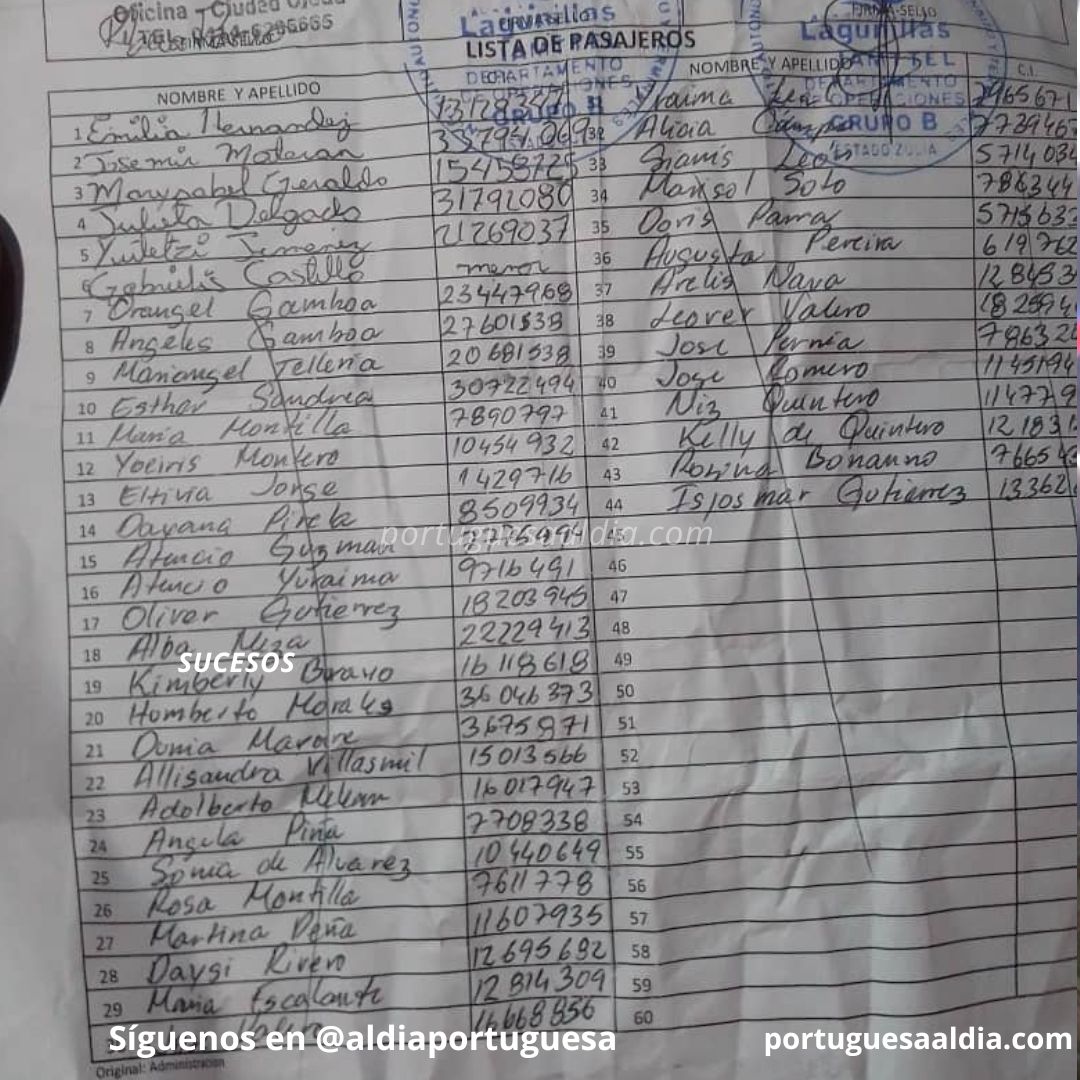 Oficina - Ciudad Ojeda
FIRMA-SELLO
Lagunillas
Lagunillas
LISTA DE PASAJEROS
DEPARTAMENTO
GRUPO B
ESTADO ZULIA
NOMBRE Y APELLIDO
NOMBRE Y APELLIDO C.I.
1 Emilia Hernandez
2 Josemir Materan 33794069 32 Alicia
3 Marysabel Geraldo 15458725 33 Sianis Leon 5714034
4 Julieta Delgado 31792080 34 Marisol Soto 786344
5 Yuiletzi Jimenez 21269037 35 Doris Parra 5715633
6 Gabrielis Castillo menor 36 Augusta Pereira 619762
7 Orangel Gamboa 23447968 37 Arelis Nava 128453
8 Angeles Gamboa 27601538 38 Leover Valero 182594
9 Mariangel Telleria 20681538 39 Jose Pernia 786328
10 Esther Sandrea 30722494 40 Jose Romero 1145194
11 Maria Montilla 7890797 41 Niz Quintero 114779
12 Yoeiris Montero 10454932 42 Kelly de Quintero 12183
13 Eltivia Jorge 1429716 43 Rosina Bonanno 76654
14 Dayana Pirela 8509934 44 Isjosmar Gutierrez 13362
15 Atencio Guzman 45
16 Atencio Yuraima 9716491 46
17 Oliver Gutierrez 18203945 47
18 Alba Niza 22229413 48
19 Kimberly Bravo 16118618 49
20 Homberto Morales 36046373 50
21 Dunia Mavare 3675971 51
22 Allisandra Villasmil 15013566 52
23 Adolberto 16017947 53
24 Angela Piña 7708338 54
25 Sonia de Alvarez 10440649 55
26 Rosa Montilla 7611778 56
27 Martina Peña 11607935 57
28 Daysi Rivero 12695692 58
29 Maria Escalante 12814309 59
16668856 60
portuguesaaldia.com
SUCESOS
Síguenos en @aldiaportuguesa
portuguesaaldia.com
Original: Administración